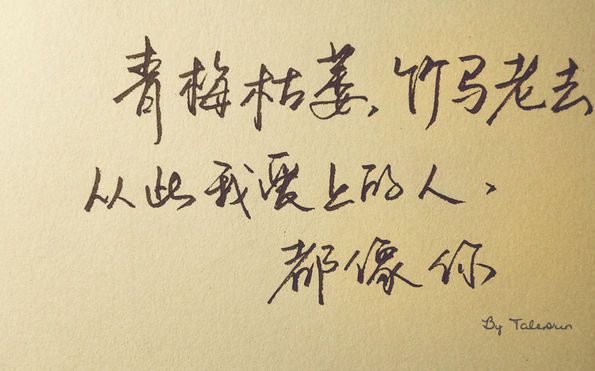 青梅枯萎、竹马老去
从此我爱上的人、
都像你
By Talensun